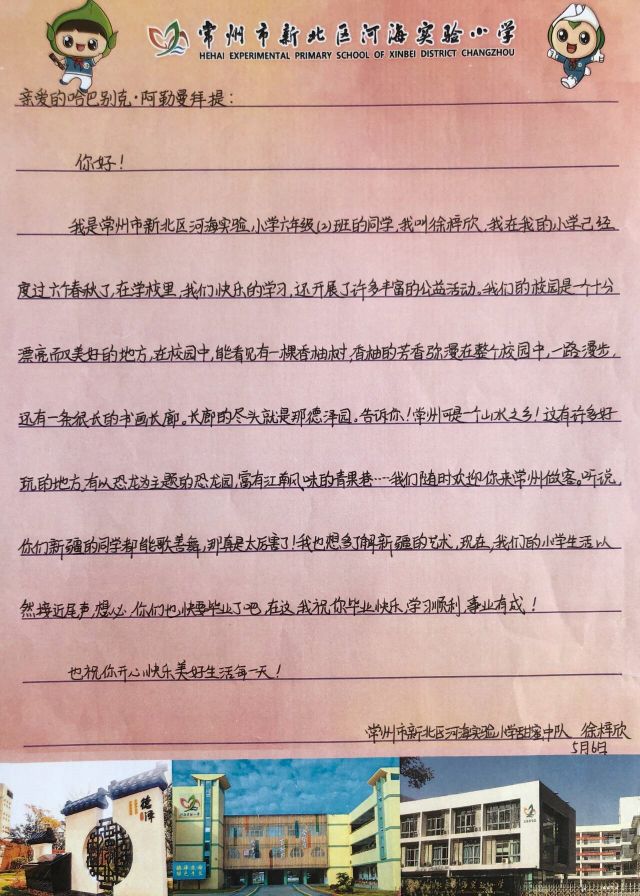 常州市新北区河海实验小学
HEHAI EXPERIMENTAL PRIMARY SCHOOL OF XINBEI DISTRICT CHANGZHOU
亲爱的哈巴别克·阿勒曼拜提：
你好！
我是常州市新北区河海实验小学六年级(2)班的同学,我叫徐梓欣,我在我的小学己经
度过六个春秋了,在学校里,我们快乐的学习,还开展了许多丰富的公益活动。我们的校园是一个十分
漂亮而又美好的地方,在校园中,能看见有一棵香柚树,香柚的芳香弥漫在整个校园中,一路漫步,
还有一条很长的书画长廊。长廊的尽头就是那德泽园。告诉你！常州可是一个山水之乡！这有许多好
玩的地方,有以恐龙为主题的恐龙园,富有江南风味的青果巷……我们随时欢迎你来常州做客。听说,
你们新疆的同学都能歌善舞,那真是太厉害了！我也想多了解新疆的艺术,现在,我们的小学生活以
然接近尾声,想必,你们也快要毕业了吧,在这,我祝你毕业快乐,学习顺利,事业有成！
也祝你开心快乐美好生活每一天！
常州市新北区河海实验小学甜蜜中队 徐梓欣
5月6日
德泽